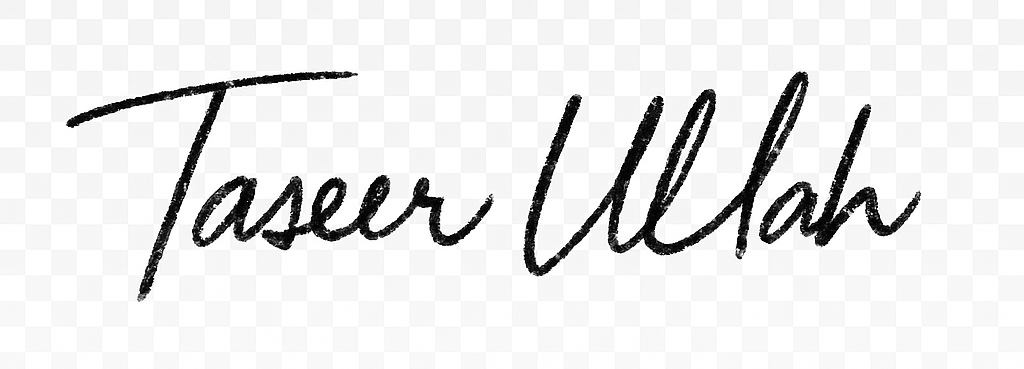 Taseer Ullah